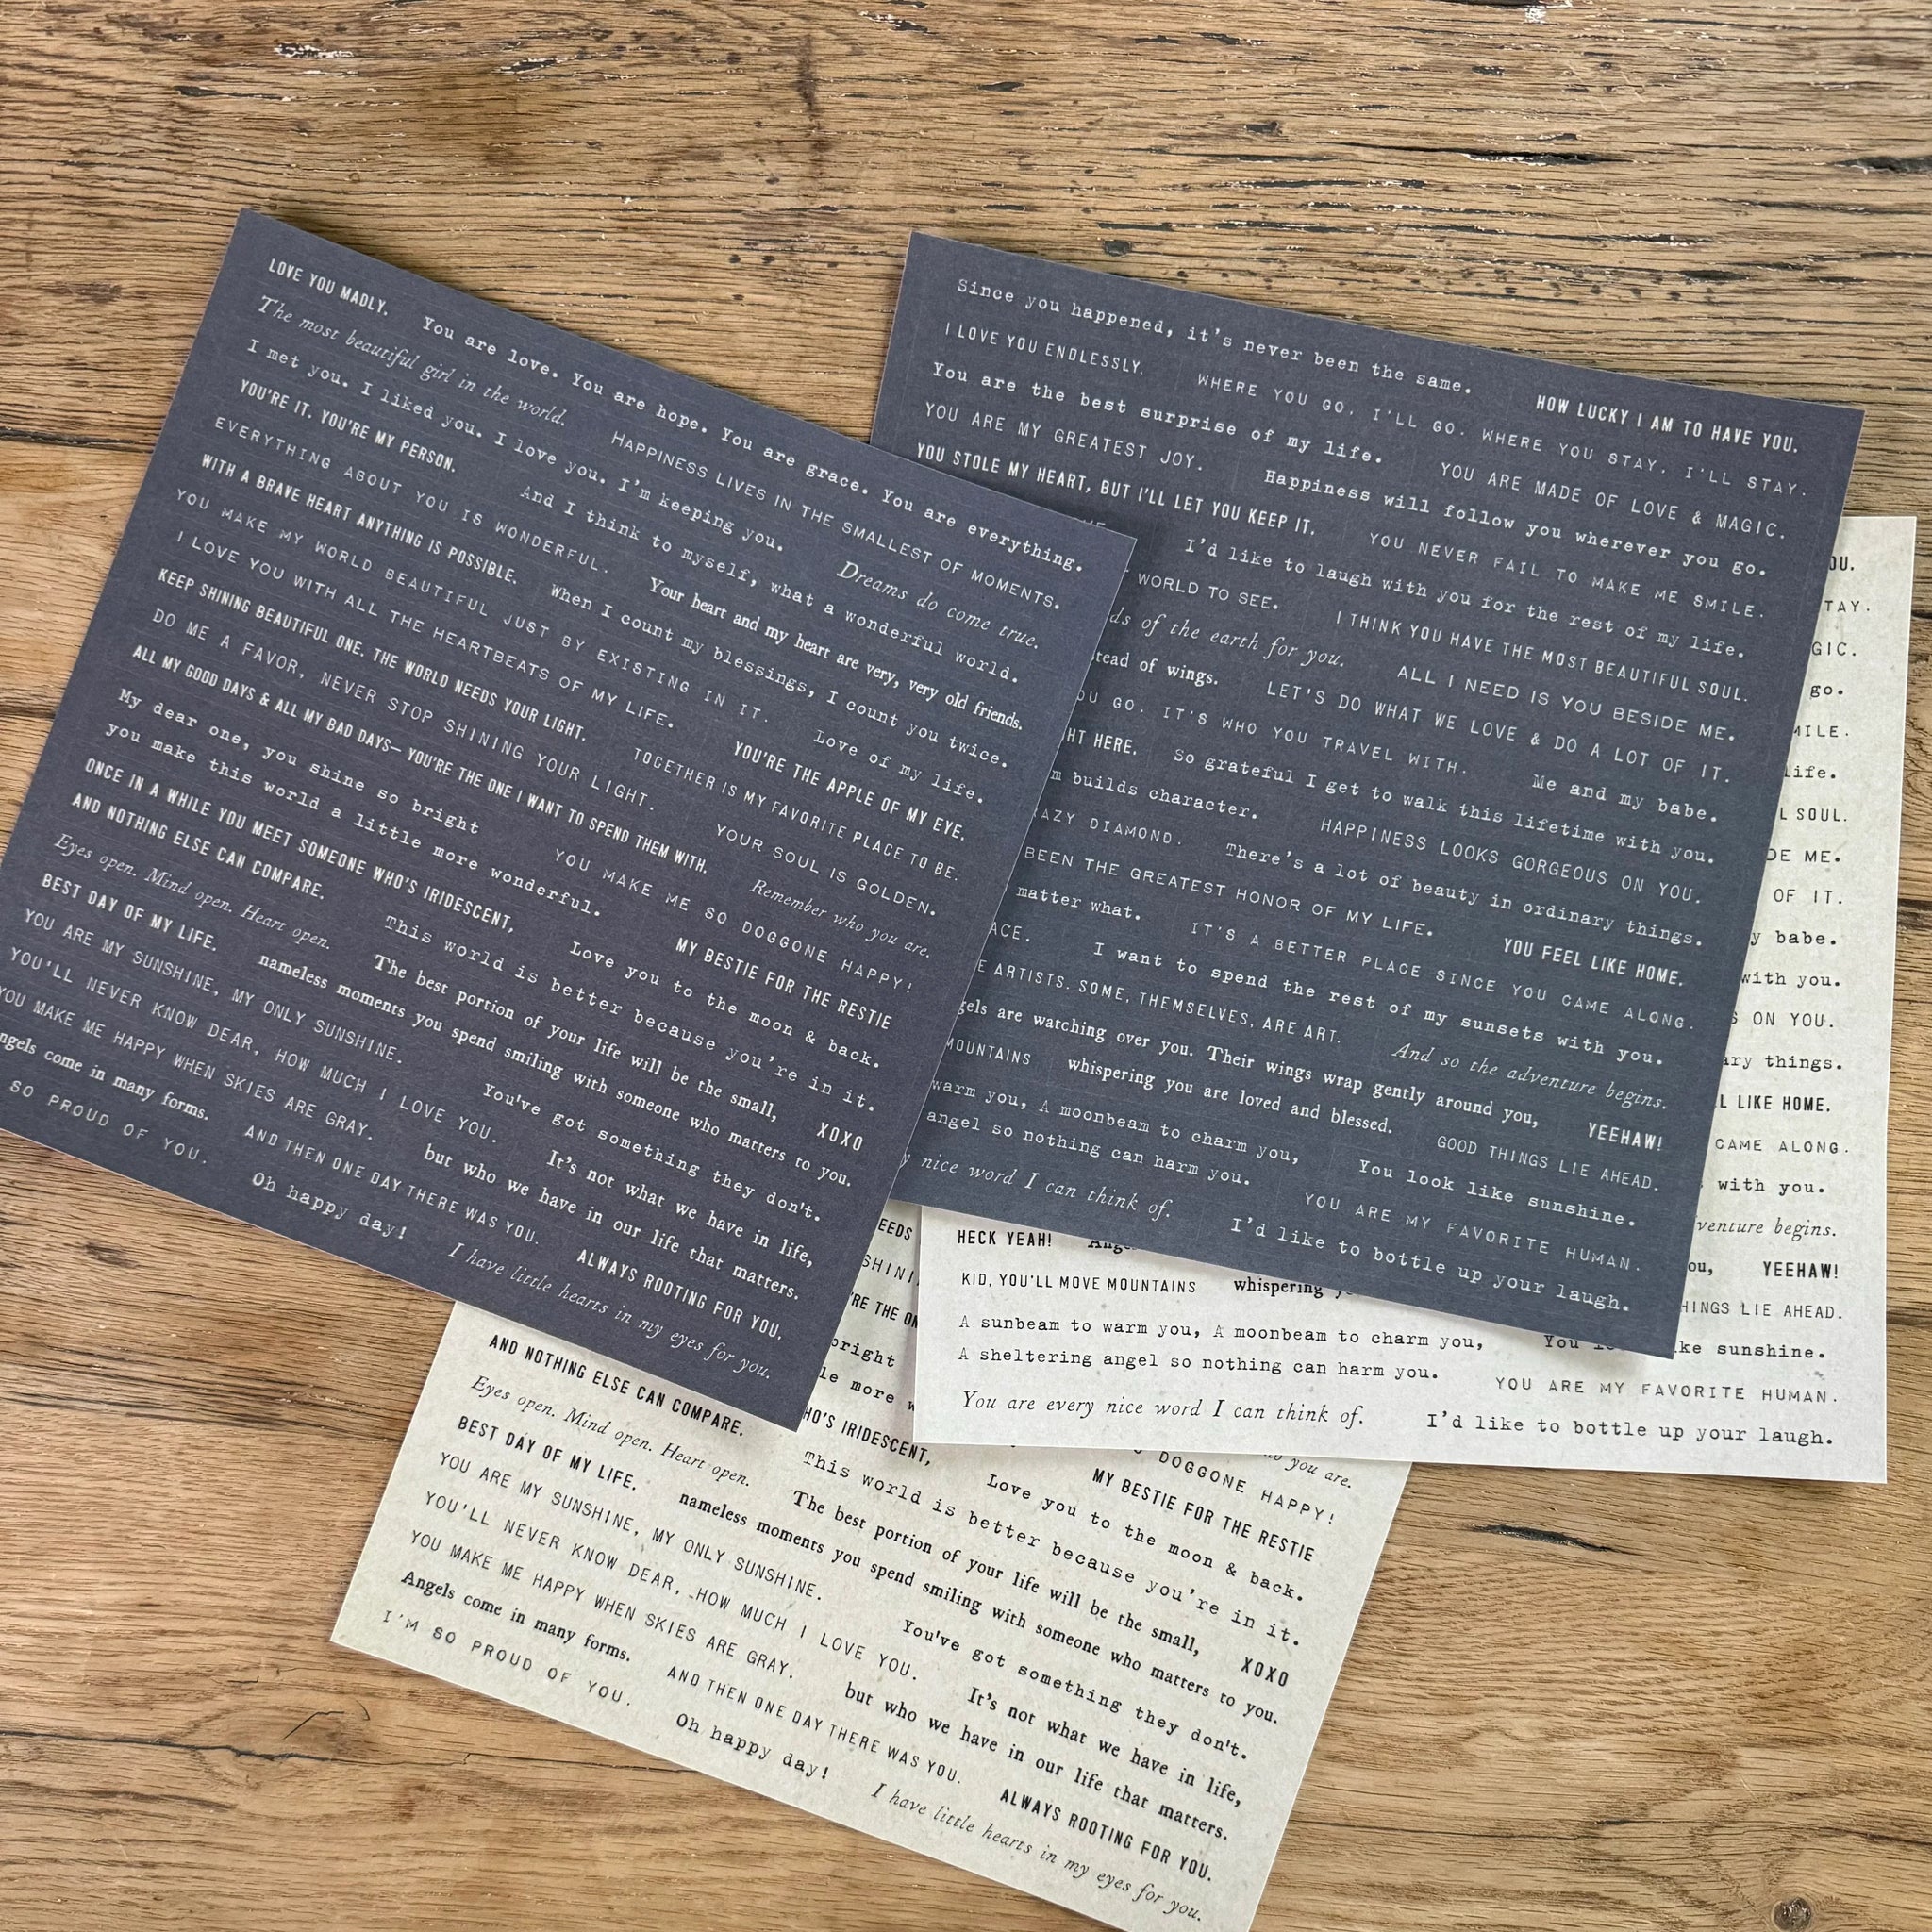 LOVE YOU MADLY. You are love. You are hope. You are grace. You are everything.
The most beautiful girl in the world. HAPPINESS LIVES IN THE SMALLEST OF MOMENTS.
I met you. I liked you. I love you. I'm keeping you. Dreams do come true.
YOU'RE IT. YOU'RE MY PERSON. And I think to myself, what a wonderful world.
EVERYTHING ABOUT YOU IS WONDERFUL. Your heart and my heart are very, very old friends.
WITH A BRAVE HEART ANYTHING IS POSSIBLE. When I count my blessings, I count you twice.
YOU MAKE MY WORLD BEAUTIFUL JUST BY EXISTING IN IT. Love of my life.
I LOVE YOU WITH ALL THE HEARTBEATS OF MY LIFE. YOU'RE THE APPLE OF MY EYE.
KEEP SHINING BEAUTIFUL ONE. THE WORLD NEEDS YOUR LIGHT. TOGETHER IS MY FAVORITE PLACE TO BE.
DO ME A FAVOR, NEVER STOP SHINING YOUR LIGHT. YOUR SOUL IS GOLDEN.
ALL MY GOOD DAYS & ALL MY BAD DAYS— YOU'RE THE ONE I WANT TO SPEND THEM WITH. Remember who you are.
My dear one, you shine so bright YOU MAKE ME SO DOGGONE HAPPY!
you make this world a little more wonderful. MY BESTIE FOR THE RESTIE
ONCE IN A WHILE YOU MEET SOMEONE WHO'S IRIDESCENT, Love you to the moon & back.
AND NOTHING ELSE CAN COMPARE. This world is better because you're in it.
Eyes open. Mind open. Heart open. The best portion of your life will be the small, XOXO
BEST DAY OF MY LIFE. nameless moments you spend smiling with someone who matters to you.
YOU ARE MY SUNSHINE, MY ONLY SUNSHINE. You've got something they don't.
YOU'LL NEVER KNOW DEAR, HOW MUCH I LOVE YOU. It's not what we have in life,
YOU MAKE ME HAPPY WHEN SKIES ARE GRAY. but who we have in our life that matters.
ngels come in many forms. AND THEN ONE DAY THERE WAS YOU. ALWAYS ROOTING FOR YOU.
SO PROUD OF YOU. Oh happy day! I have little hearts in my eyes for you.
Since you happened, it's never been the same. HOW LUCKY I AM TO HAVE YOU.
I LOVE YOU ENDLESSLY. WHERE YOU GO, I'LL GO. WHERE YOU STAY, I'LL STAY.
You are the best surprise of my life. YOU ARE MADE OF LOVE & MAGIC.
YOU ARE MY GREATEST JOY. Happiness will follow you wherever you go.
YOU STOLE MY HEART, BUT I'LL LET YOU KEEP IT. YOU NEVER FAIL TO MAKE ME SMILE.
I'd like to laugh with you for the rest of my life.
WORLD TO SEE. I THINK YOU HAVE THE MOST BEAUTIFUL SOUL.
ds of the earth for you. ALL I NEED IS YOU BESIDE ME.
tead of wings. LET'S DO WHAT WE LOVE & DO A LOT OF IT.
OU GO. IT'S WHO YOU TRAVEL WITH. Me and my babe.
HT HERE. So grateful I get to walk this lifetime with you.
m builds character. HAPPINESS LOOKS GORGEOUS ON YOU.
AZY DIAMOND. There's a lot of beauty in ordinary things.
BEEN THE GREATEST HONOR OF MY LIFE. YOU FEEL LIKE HOME.
matter what. IT'S A BETTER PLACE SINCE YOU CAME ALONG.
ACE. I want to spend the rest of my sunsets with you.
E ARTISTS. SOME, THEMSELVES, ARE ART. And so the adventure begins.
gels are watching over you. Their wings wrap gently around you, YEEHAW!
MOUNTAINS whispering you are loved and blessed. GOOD THINGS LIE AHEAD.
warm you, A moonbeam to charm you, You look like sunshine.
angel so nothing can harm you. YOU ARE MY FAVORITE HUMAN.
y nice word I can think of. I'd like to bottle up your laugh.
OU.
TAY.
GIC.
go.
MILE.
life.
L SOUL.
DE ME.
OF IT.
y babe.
with you.
S ON YOU.
ary things.
L LIKE HOME.
CAME ALONG.
with you.
venture begins.
HECK YEAH! Ange ou, YEEHAW!
KID, YOU'LL MOVE MOUNTAINS whispering y HINGS LIE AHEAD.
A sunbeam to warm you, A moonbeam to charm you, You ke sunshine.
A sheltering angel so nothing can harm you. YOU ARE MY FAVORITE HUMAN.
You are every nice word I can think of. I'd like to bottle up your laugh.
EEDS
SHINI
'RE THE ON
bright DOGGONE HAPPY!
le more w MY BESTIE FOR THE RESTIE
HO'S IRIDESCENT, Love you to the moon & back.
you are.
AND NOTHING ELSE CAN COMPARE. This world is better because you're in it.
Eyes open. Mind open. Heart open. The best portion of your life will be the small, XOXO
BEST DAY OF MY LIFE. nameless moments you spend smiling with someone who matters to you.
YOU ARE MY SUNSHINE, MY ONLY SUNSHINE. You've got something they don't.
YOU'LL NEVER KNOW DEAR, HOW MUCH I LOVE YOU. It's not what we have in life,
YOU MAKE ME HAPPY WHEN SKIES ARE GRAY. but who we have in our life that matters.
Angels come in many forms. AND THEN ONE DAY THERE WAS YOU. ALWAYS ROOTING FOR YOU.
I'M SO PROUD OF YOU. Oh happy day! I have little hearts in my eyes for you.